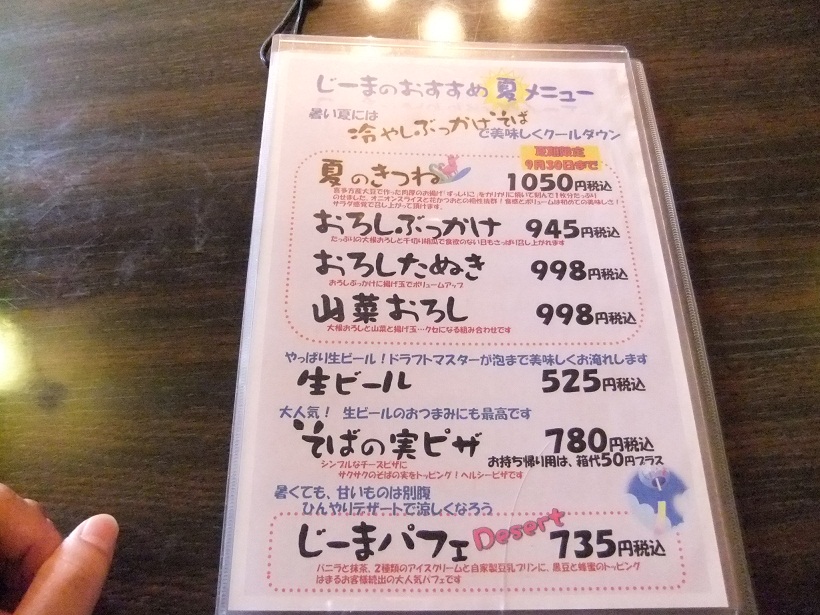 じーまのおすすめ夏メニュー
暑い夏には
冷やしぶっかけそば
で美味しくクールダウン
夏期限定
9月30日まで
夏のきつね 1050円税込
のせました、オニオンスライスと花かつおとの相性抜群！食感とボリュームは初めての美味しさ！
サラダ感覚で召し上がって頂けます。
おろしぶっかけ 945円税込
たっぷりの大根おろしと千切り胡瓜で食欲のない日もさっぱり召し上がれます
おろしたぬき 998円税込
おろしぶっかけに揚げ玉でボリュームアップ
山菜おろし 998円税込
大根おろしと山菜と揚げ玉…クセになる組み合わせです
やっぱり生ビール！ドラフトマスターが泡まで美味しくお淹れします
生ビール 525円税込
大人気！ 生ビールのおつまみにも最高です
そばの実ピザ 780円税込
お持ち帰り用は、箱代50円プラス
シンプルなチーズピザに
サクサクのそばの実をトッピング！ヘルシーピザです
暑くても、甘いものは別腹
ひんやりデザートで涼しくなろう
じーまパフェ Desert 735円税込
バニラと抹茶、2種類のアイスクリームと自家製豆乳プリンに、黒豆と蜂蜜のトッピング
はまるお客様続出の大人気パフェです